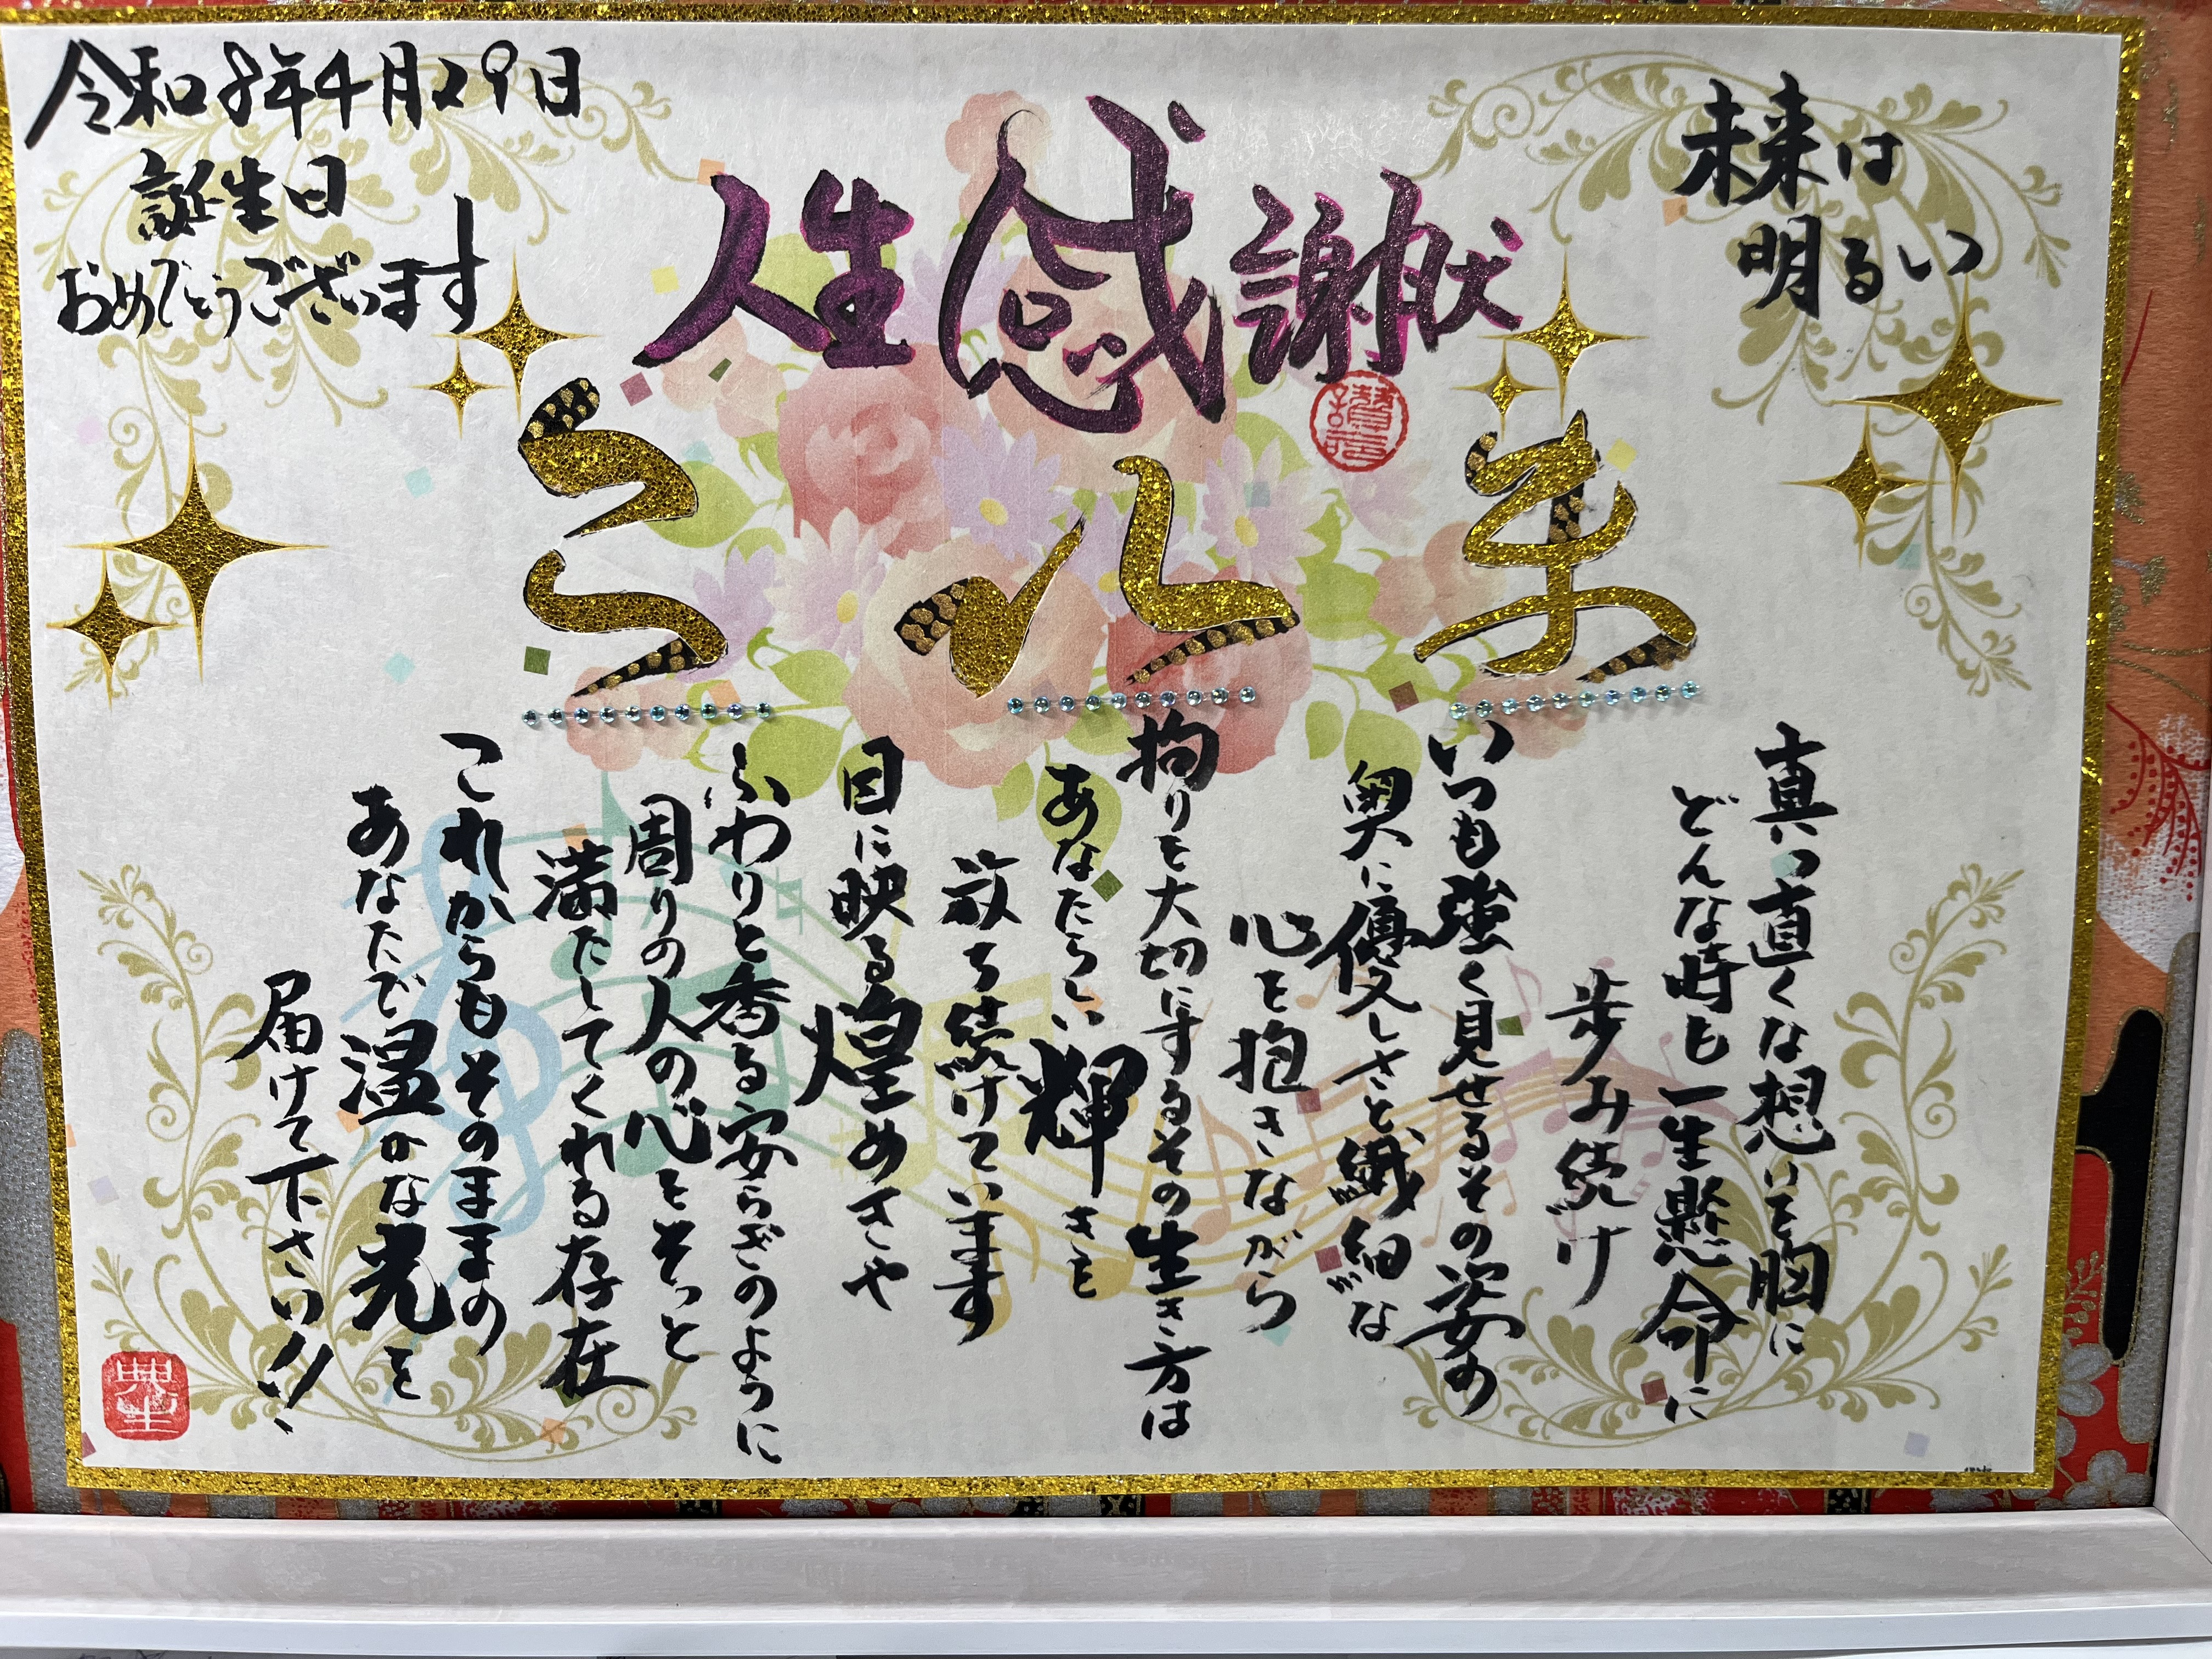 令和8年4月29日
誕生日
おめでとうございます
未来は
明るい
人生感謝状
まいこ
真っ直ぐな想いを胸に
どんな時も一生懸命に
歩み続け
いつも強く見せるその姿の
奥に優しさと繊細な
心を抱きながら
拘りを大切にするその生き方は
あなたらしい輝きを
放ち続けています
目に映る煌めきや
ふわりと香る安らぎのように
周りの人の心をそっと
満たしてくれる存在
これからもそのままの
あなたで温かな光を
届けて下さい!!